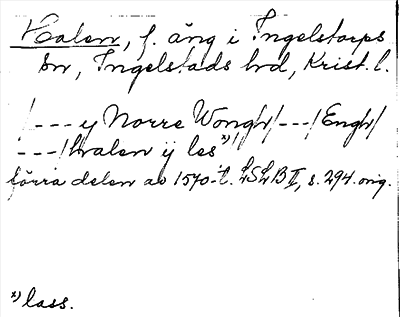 Halen, f. äng i Ingelstorps
sn, Ingelstads hd, Krist. l.
/---y Norre Wongh/---/Engh/
---/hralen ij les x)/
förra delen av 1570-t. LSLB II, s. 294. orig.
x) lass.